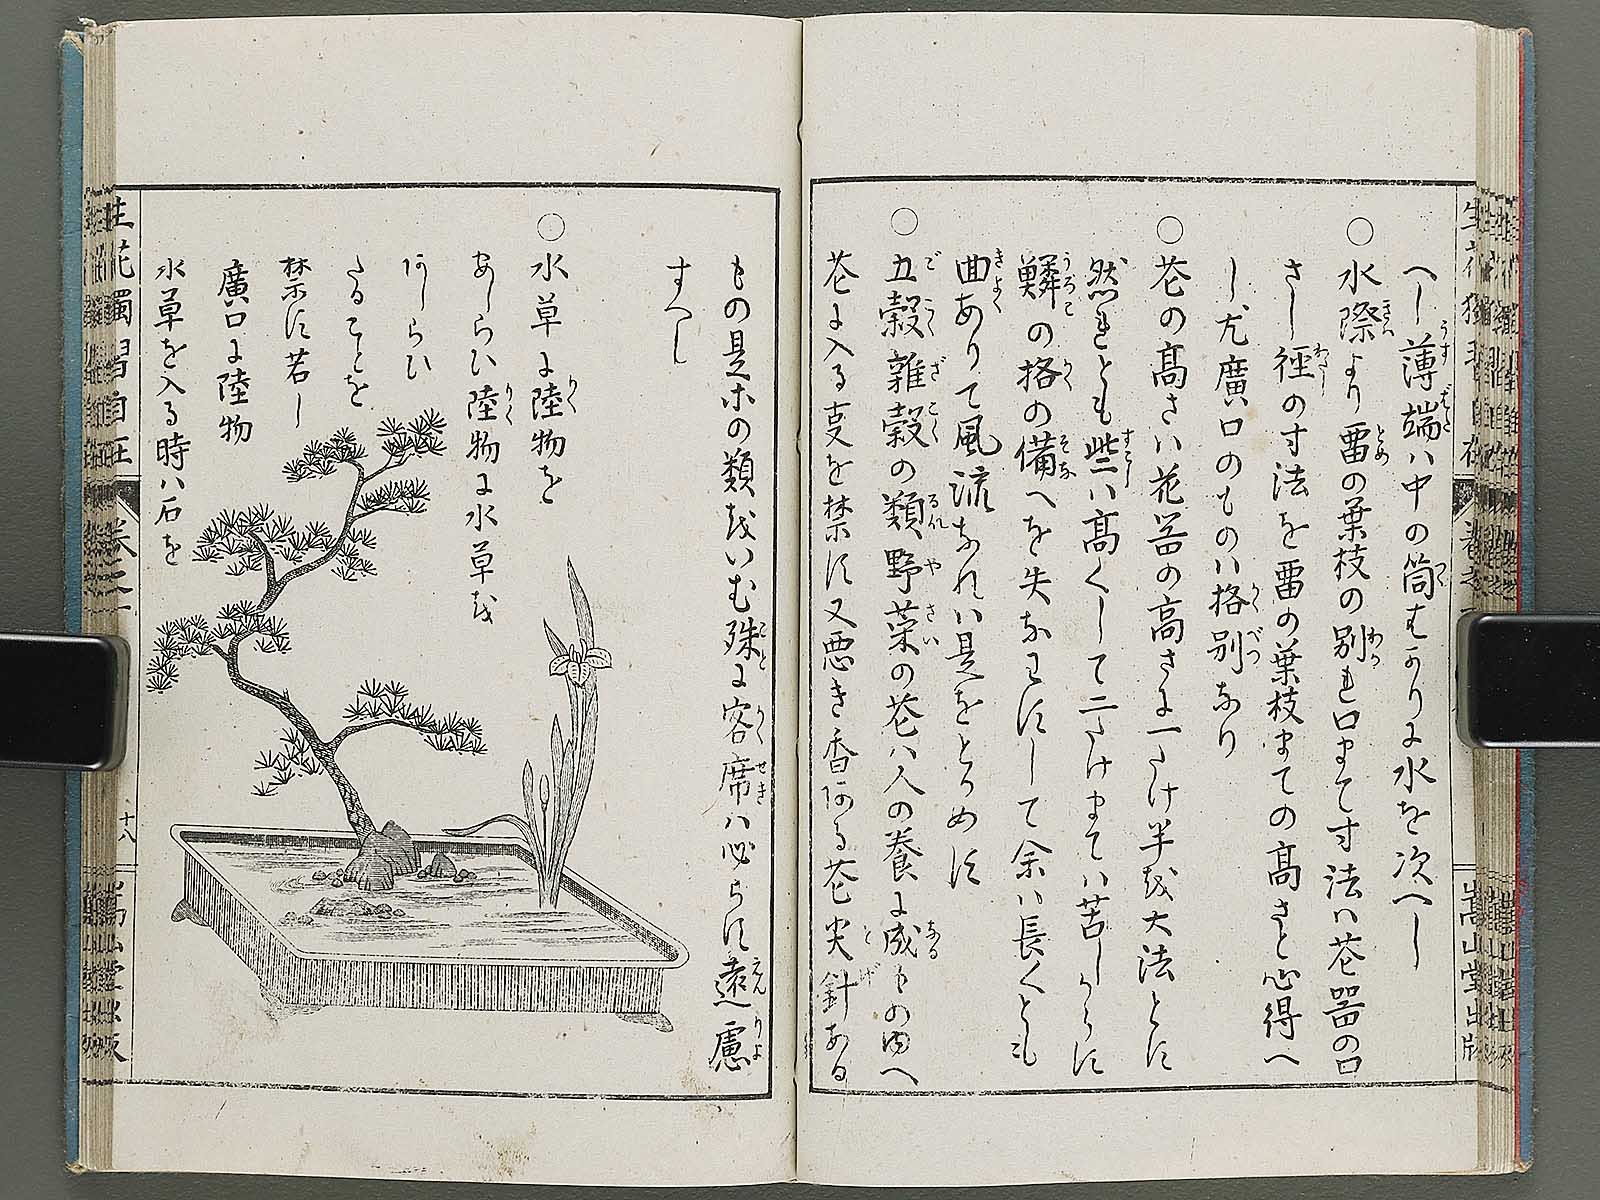 へし薄端ハ中の筒はかりに水を次へし
○水際より畱の葉枝の別れ口まて寸法ハ花器の口
さし徑の寸法を畱の葉枝まての髙さと心得へ
し尤廣口のものハ格別なり
○花の髙さハ花器の高さに一たけ半を大法とす
然れとも些ハ髙くして二たけまてハ苦しからす
鱗の格の備へを失なわすにして余ハ長くとも
曲ありて風流なれハ是をとかめす
○五穀雜穀の類野菜の花ハ人の養に成ものゆへ
花に入る事を禁す又悪き香ある花尖針ある
もの是ホの類をいむ殊に客席ハ必らす遠慮
すへし
○水草に陸物を
あしらひ陸物に水草を
あしらひ
たることを
禁す若し
廣口に陸物
水草を入る時ハ石を
生花獨習自在
卷之一
十八
嵩山堂出版